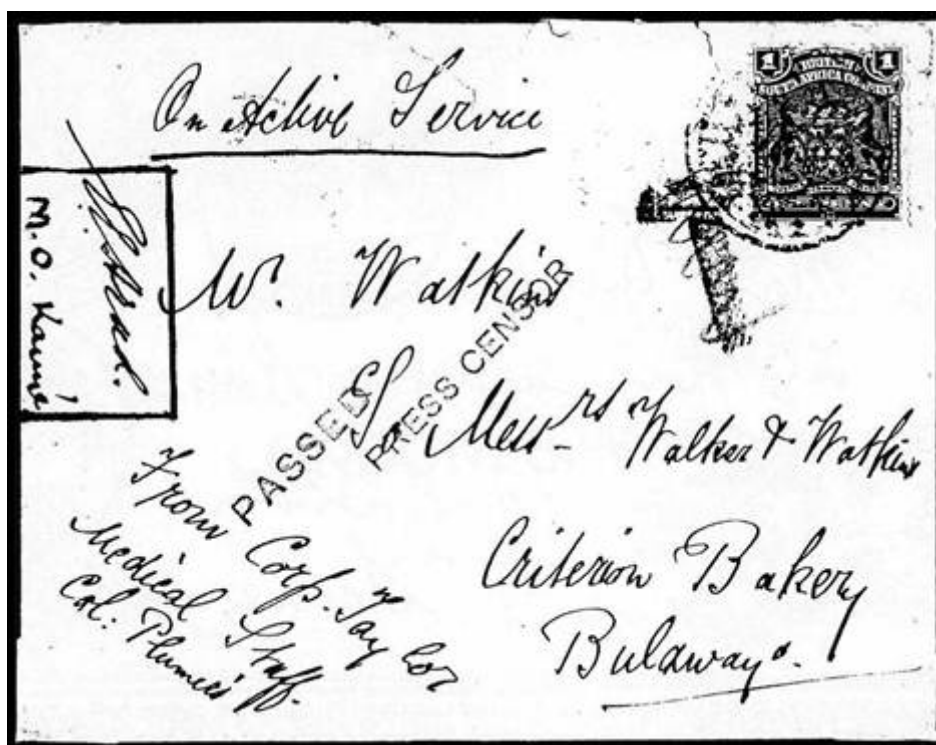 On Active Service
1 BRITISH 1
SOUTH AFRICA COMPANY
M.O. Kanné
Mr. Watkins
PASSED
PRESS CENSOR
Messrs Walker & Watkins
Criterion Bakery
Bulawayo.
From Corp. Taylor
Medical Staff.
Col: Plumer's